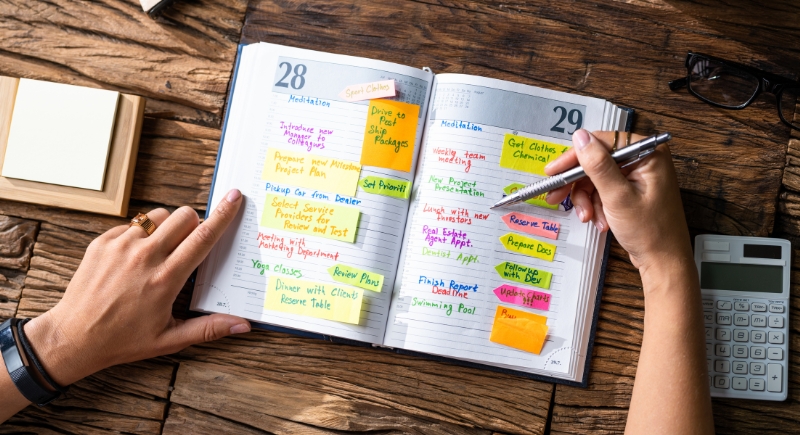 28
Sport Clothes
Meditation
Drive to
Post
Ship
Packages
Introduce new
Manager to
Colleagues
Prepare new Milestone
Project Plan
Set Prioriti
Pickup Car from Dealer
Select Service
Providers for
Review and Test
Meeting with
Marketing Department
Yoga classes
Review Plans
Dinner with Clients
Reserve Table
29
Meditation
Get Clothes f
Chemical
Weekly team
meeting
New Project
Presentation
Lunch with new
Investors
Reserve Table
Real Estate
Agent Appt.
Prepare Docs
Dentist Appt.
Follow up
with Dev
Finish Report
Deadline
Swimming Pool